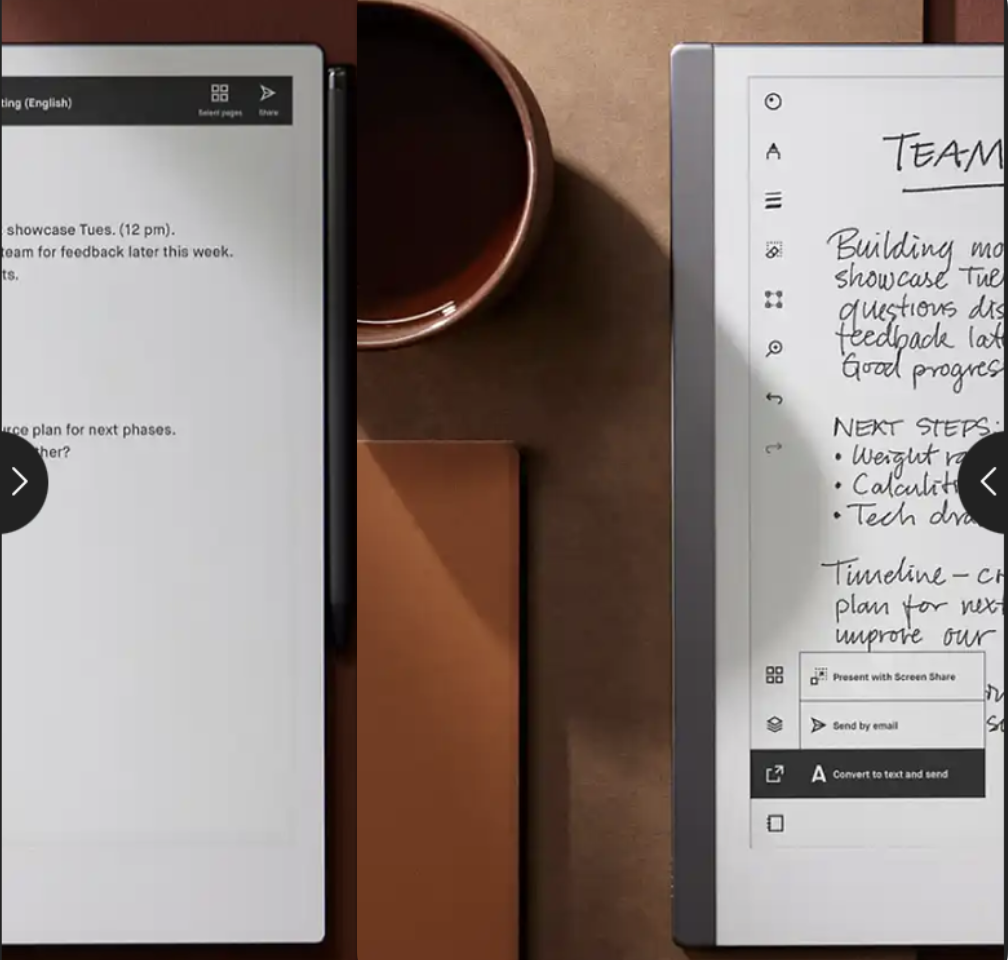 ting (English)
Select pages
Share
showcase Tues. (12 pm).
team for feedback later this week.
ts.
urce plan for next phases.
ther?
TEAM
Building mo
showcase Tue
questions dis
feedback lat
Good progres
NEXT STEPS:
• Weight ra
• Calculit
• Tech dra
Timeline – cr
plan for next
improve our
Present with Screen Share
Send by email
A Convert to text and send